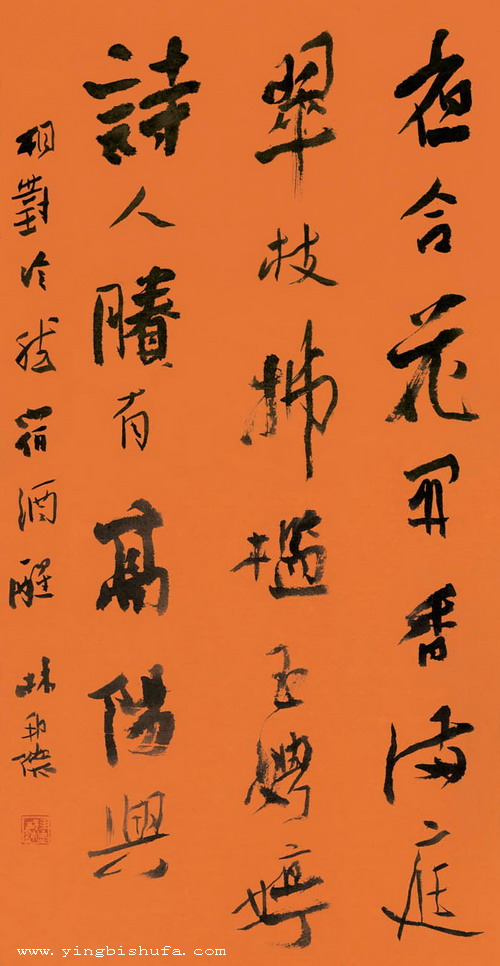 夜合花開香滿庭
翠枝拂檻玉娉婷
詩人賸有高陽興
相對泠然宿酒醒
林邦傑
www.yingbishufa.com